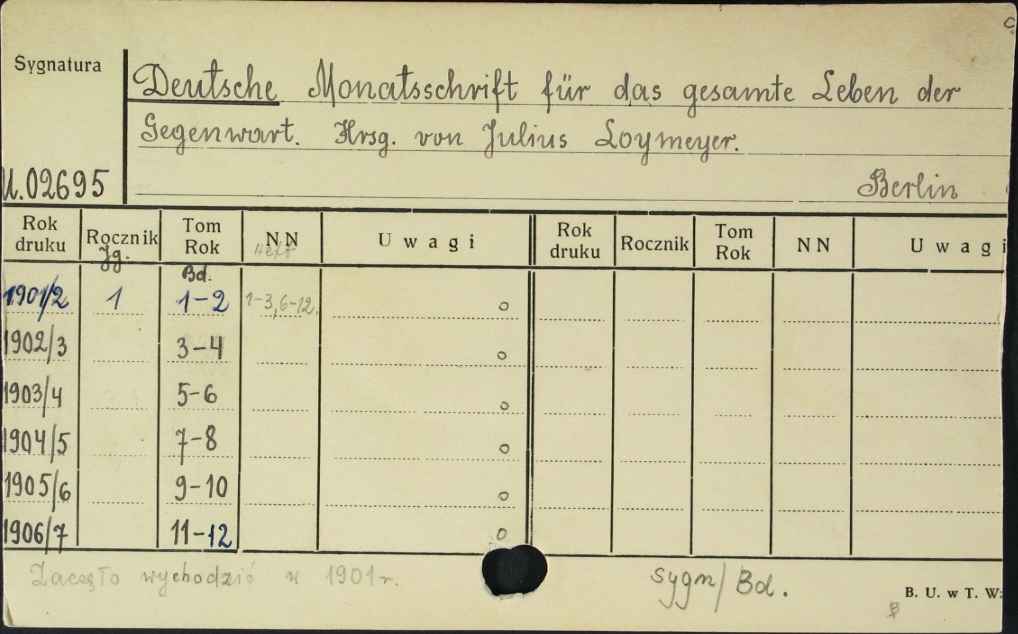 Sygnatura
Deutsche Monatsschrift für das gesamte Leben der
Gegenwart. Hrsg. von Julius Loymeyer.
U.02695 Berlin
Rok druku Rocznik Tom Rok NN Uwagi Rok druku Rocznik Tom Rok NN Uwagi
Jg. Bd. Heft
1901/2 1 1-2 1-3,6-12. o
1902/3 3-4 o
1903/4 5-6 o
1904/5 7-8 o
1905/6 9-10 o
1906/7 11-12 o
Zaczęło wychodzić w 1901 r.
sygn/Bd.
B. U. w T. W: